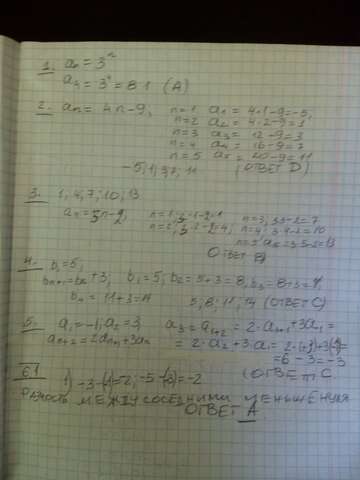 1. an = 3ⁿ
a4 = 3⁴ = 81 (A)
2. an = 4n-9, n=1 a1 = 4·1-9=-5,
n=2 a2 = 4·2-9=1,
n=3 a3 = 12-9=3
n=4 a4 = 16-9=7
n=5 a5 = 20-9=11
-5; 1; 3; 7; 11 (ОТВЕТ D)
3. 1, 4, 7; 10; 13
an = 3n-2, n=1; 3·1-2=1 n=3, 3·3-2=7
n=2; 3·2-2=4; n=4; 3·4-2=10
n=5 a5=3·5-2=13
ОТВЕТ В)
4. b1=5;
bn+1=bn+3; b1=5; b2=5+3=8, b3=8+3=11,
b4 = 11+3=14 5; 8; 11; 14 (ОТВЕТ С)
5. a1=-1; a2=3 a3 = a1+2 = 2·an+1+3a1 =
an+2=2an+1+3an = 2·a2+3·a1 =
=6-3=-3
(ОТВЕТ С
6.1 1) -3-(-1)=-2; -5-(-3)=-2
РАЗНОСТЬ МЕЖДУ СОСЕДНИМИ ЧЛЕНАМИ
ОТВЕТ А